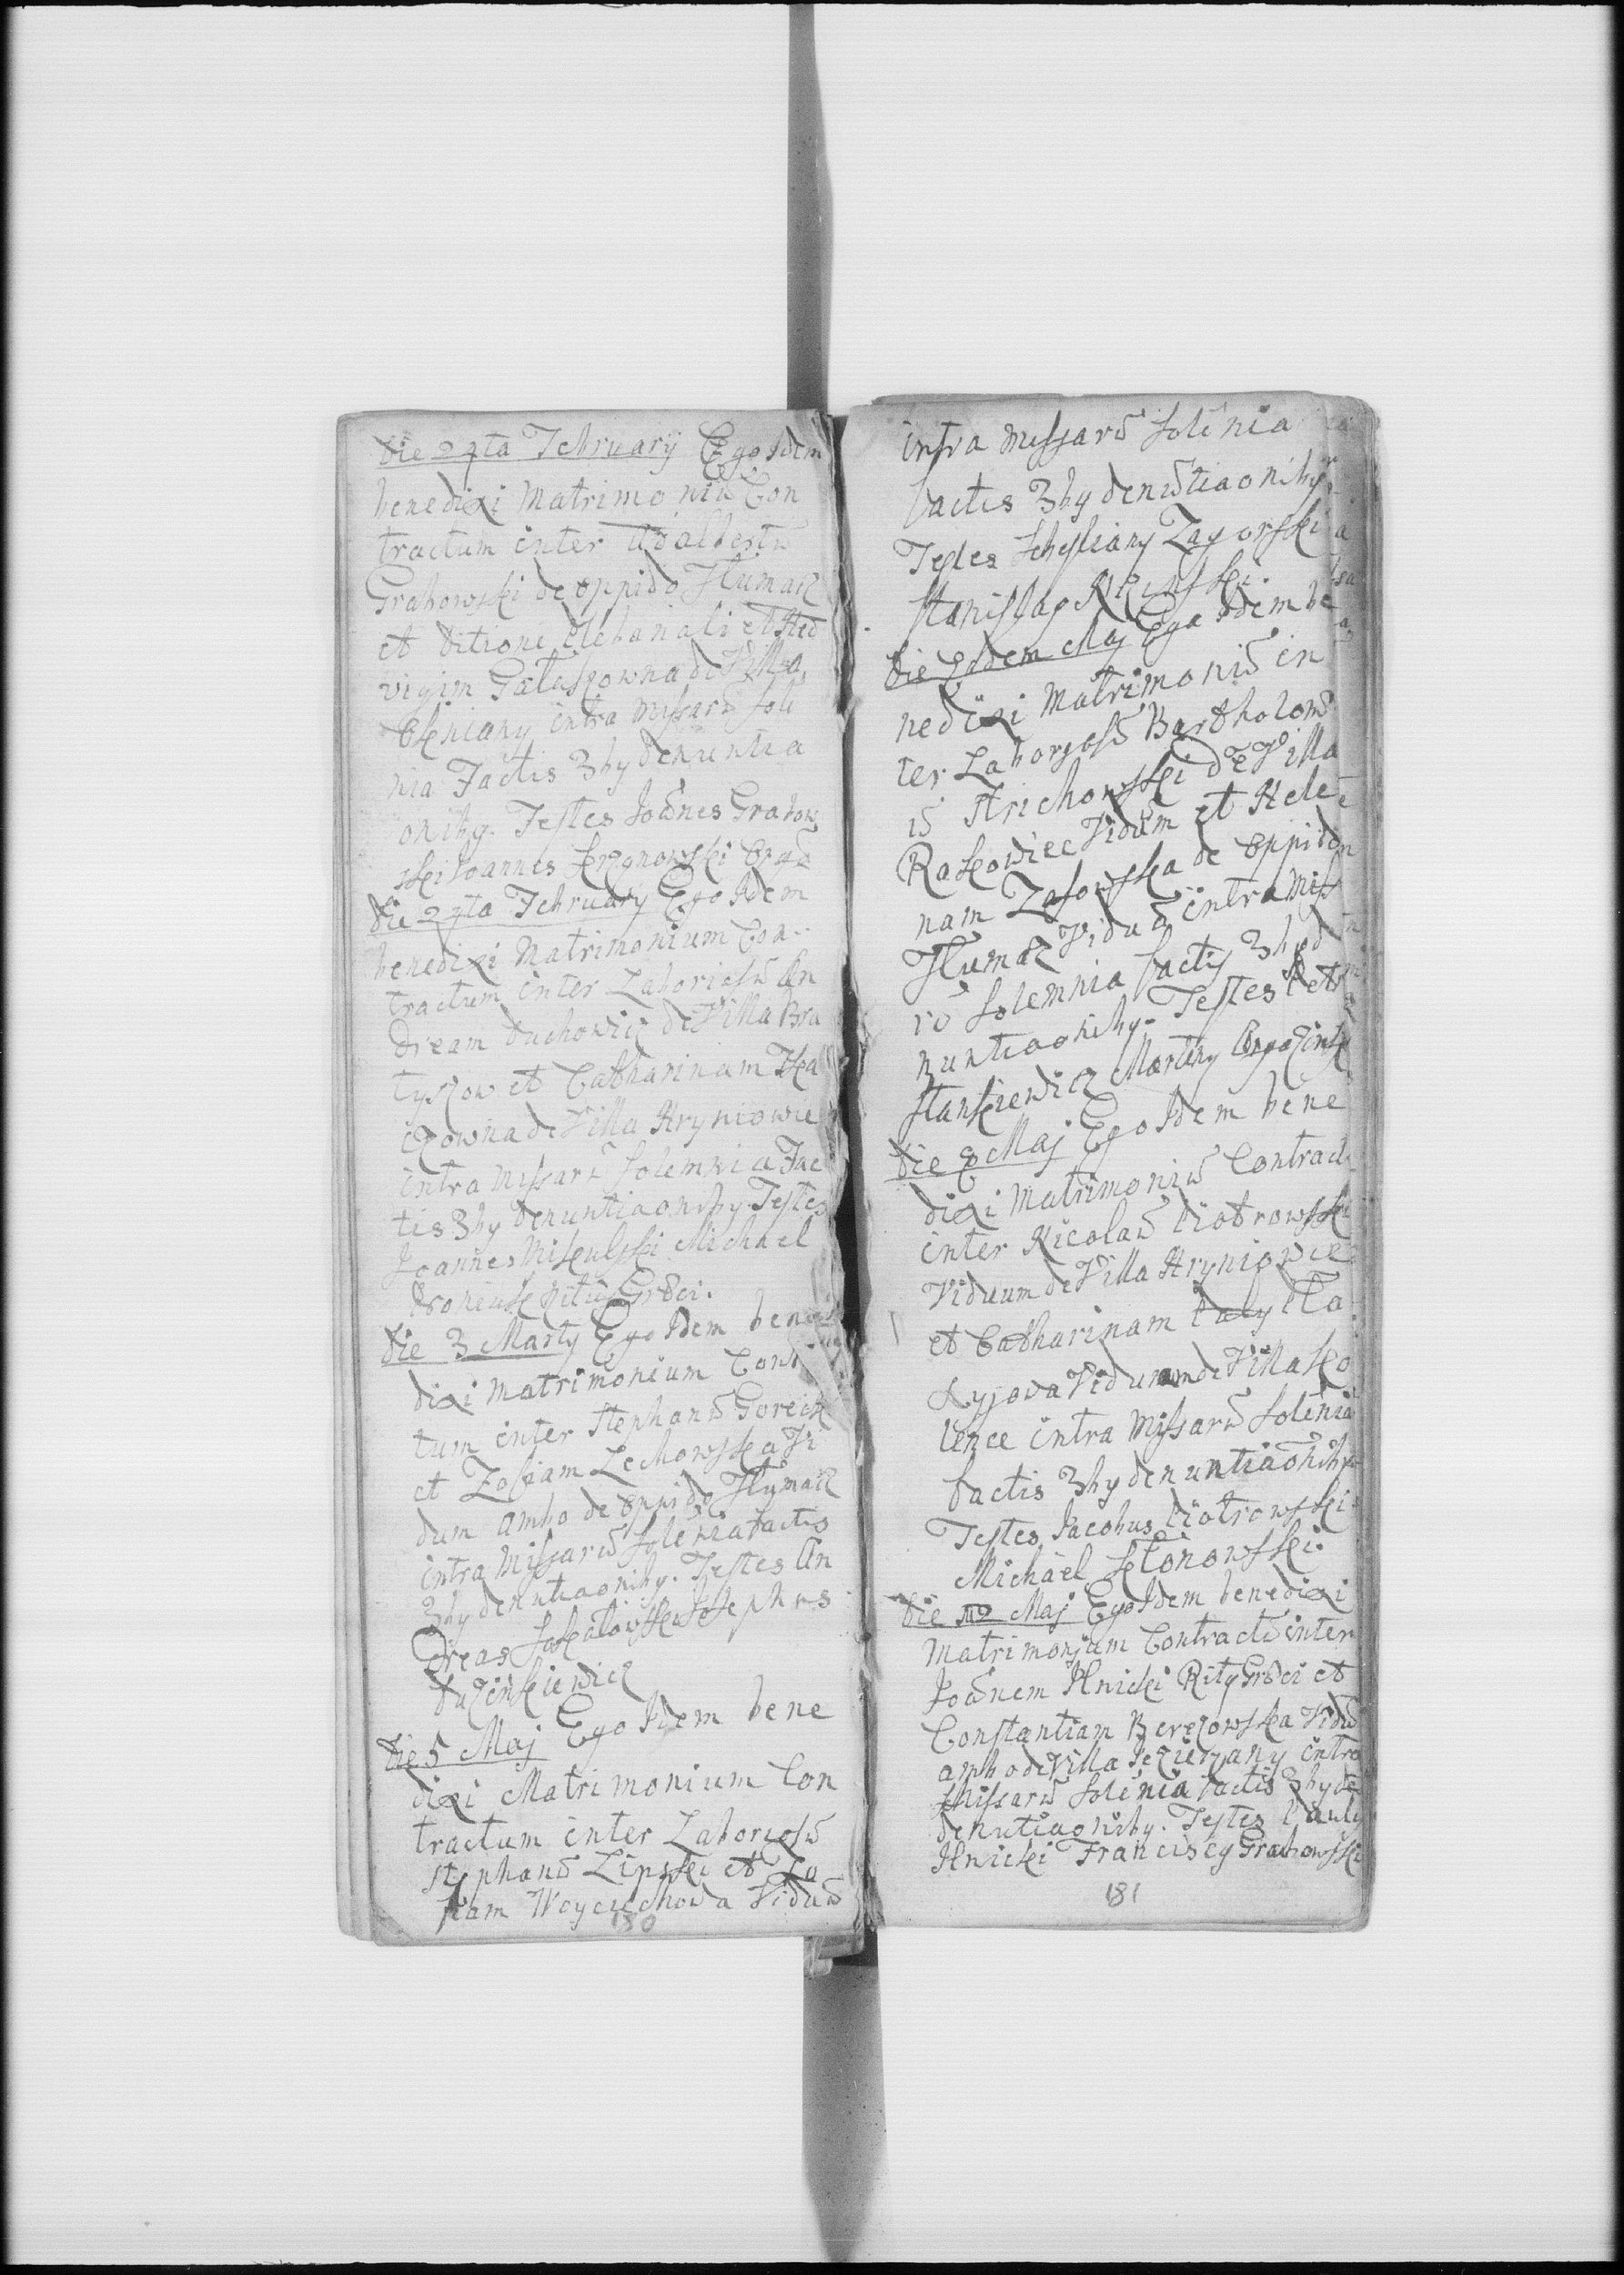 Die 24ta February Ego Idem
benedixi Matrimoniũ Con
tractum inter Adalbertũ
Grabowski de oppido Tłumacz
et Ditioni Plebanali et Hed
vigim Gałaszowna de Villa
Okniany intra Missarũ Solĩ
nia Factis 3by denuntia
onibꝫ. Testes Joãnes Grabow
ski Joannes
Die 24ta February Ego Idem
benedixi Matrimonium Con-
tractum inter Laboriosũ An
dream Duchowicz de Villa Bra
tyszow et Catharinam Tka
czowna de Villa Hryniowie
intra Missarũ Solemnia Fac
tis 3by denuntiaonibꝫ Testes
Joannes Mikulski Michael
Ritus Grẽci.
Die 3 Marty Ego Idem bene
dixi Matrimonium Cont
tum inter Stephanũ Goreck
et Zofiam Lechowska Vi
dum ambo de oppido Tłumacz
intra Missarũ Solẽnia factis
3by denutiaonibꝫ. Testes An
dreas Sokalowski Josephus

Die 5 Maj Ego Idem bene
dixi Matrimonium Con
tractum inter Laboriosũ
Stephanũ Lipski et Zo
fiam Woyciechowa Viduũ
180
intra Missarũ Solẽnia
factis 3by denũtiaonibꝫ
Testes Sebestiany Zagorski
Stanislaꝫ
Die eadem Maj Ego Idem be
nedixi Matrimoniũ in
ter Laboriosũ Bartholom
ũ Strichowski de Villa
Raskowiec Viduum et Hele
nam Zasowska de oppido
Tłumacz Viduã intra Miss
rũ Solemnia factis 3by de
nuntiaonibꝫ. Testes Petr
Stankiewicz Martiny
Die 8 Maj Ego Idem bene
dixi Matrimoniũ Contract
inter Nicolaũ Piotrowski
Viduum de Villa Hryniowce
et Catharinam
Viduam de Villa Ko
lence intra Missarũ Solẽnia
factis 3by denuntiaõnibꝫ
Testes Jacobus Piotrowski
Michael Słonowski.
Die 12 Maj Ego Idem benedixi
Matrimonium Contractũ inter
Joãnem Ilnicki Ritꝫ Grẽci et
Constantiam Berezowska Viduã
ambo de Villa Jezierzany intra
Missarũ Solẽnia factis 3by de
denutiaonibꝫ. Testes Pauly
Ilnicki Franciscy Grabowski
181